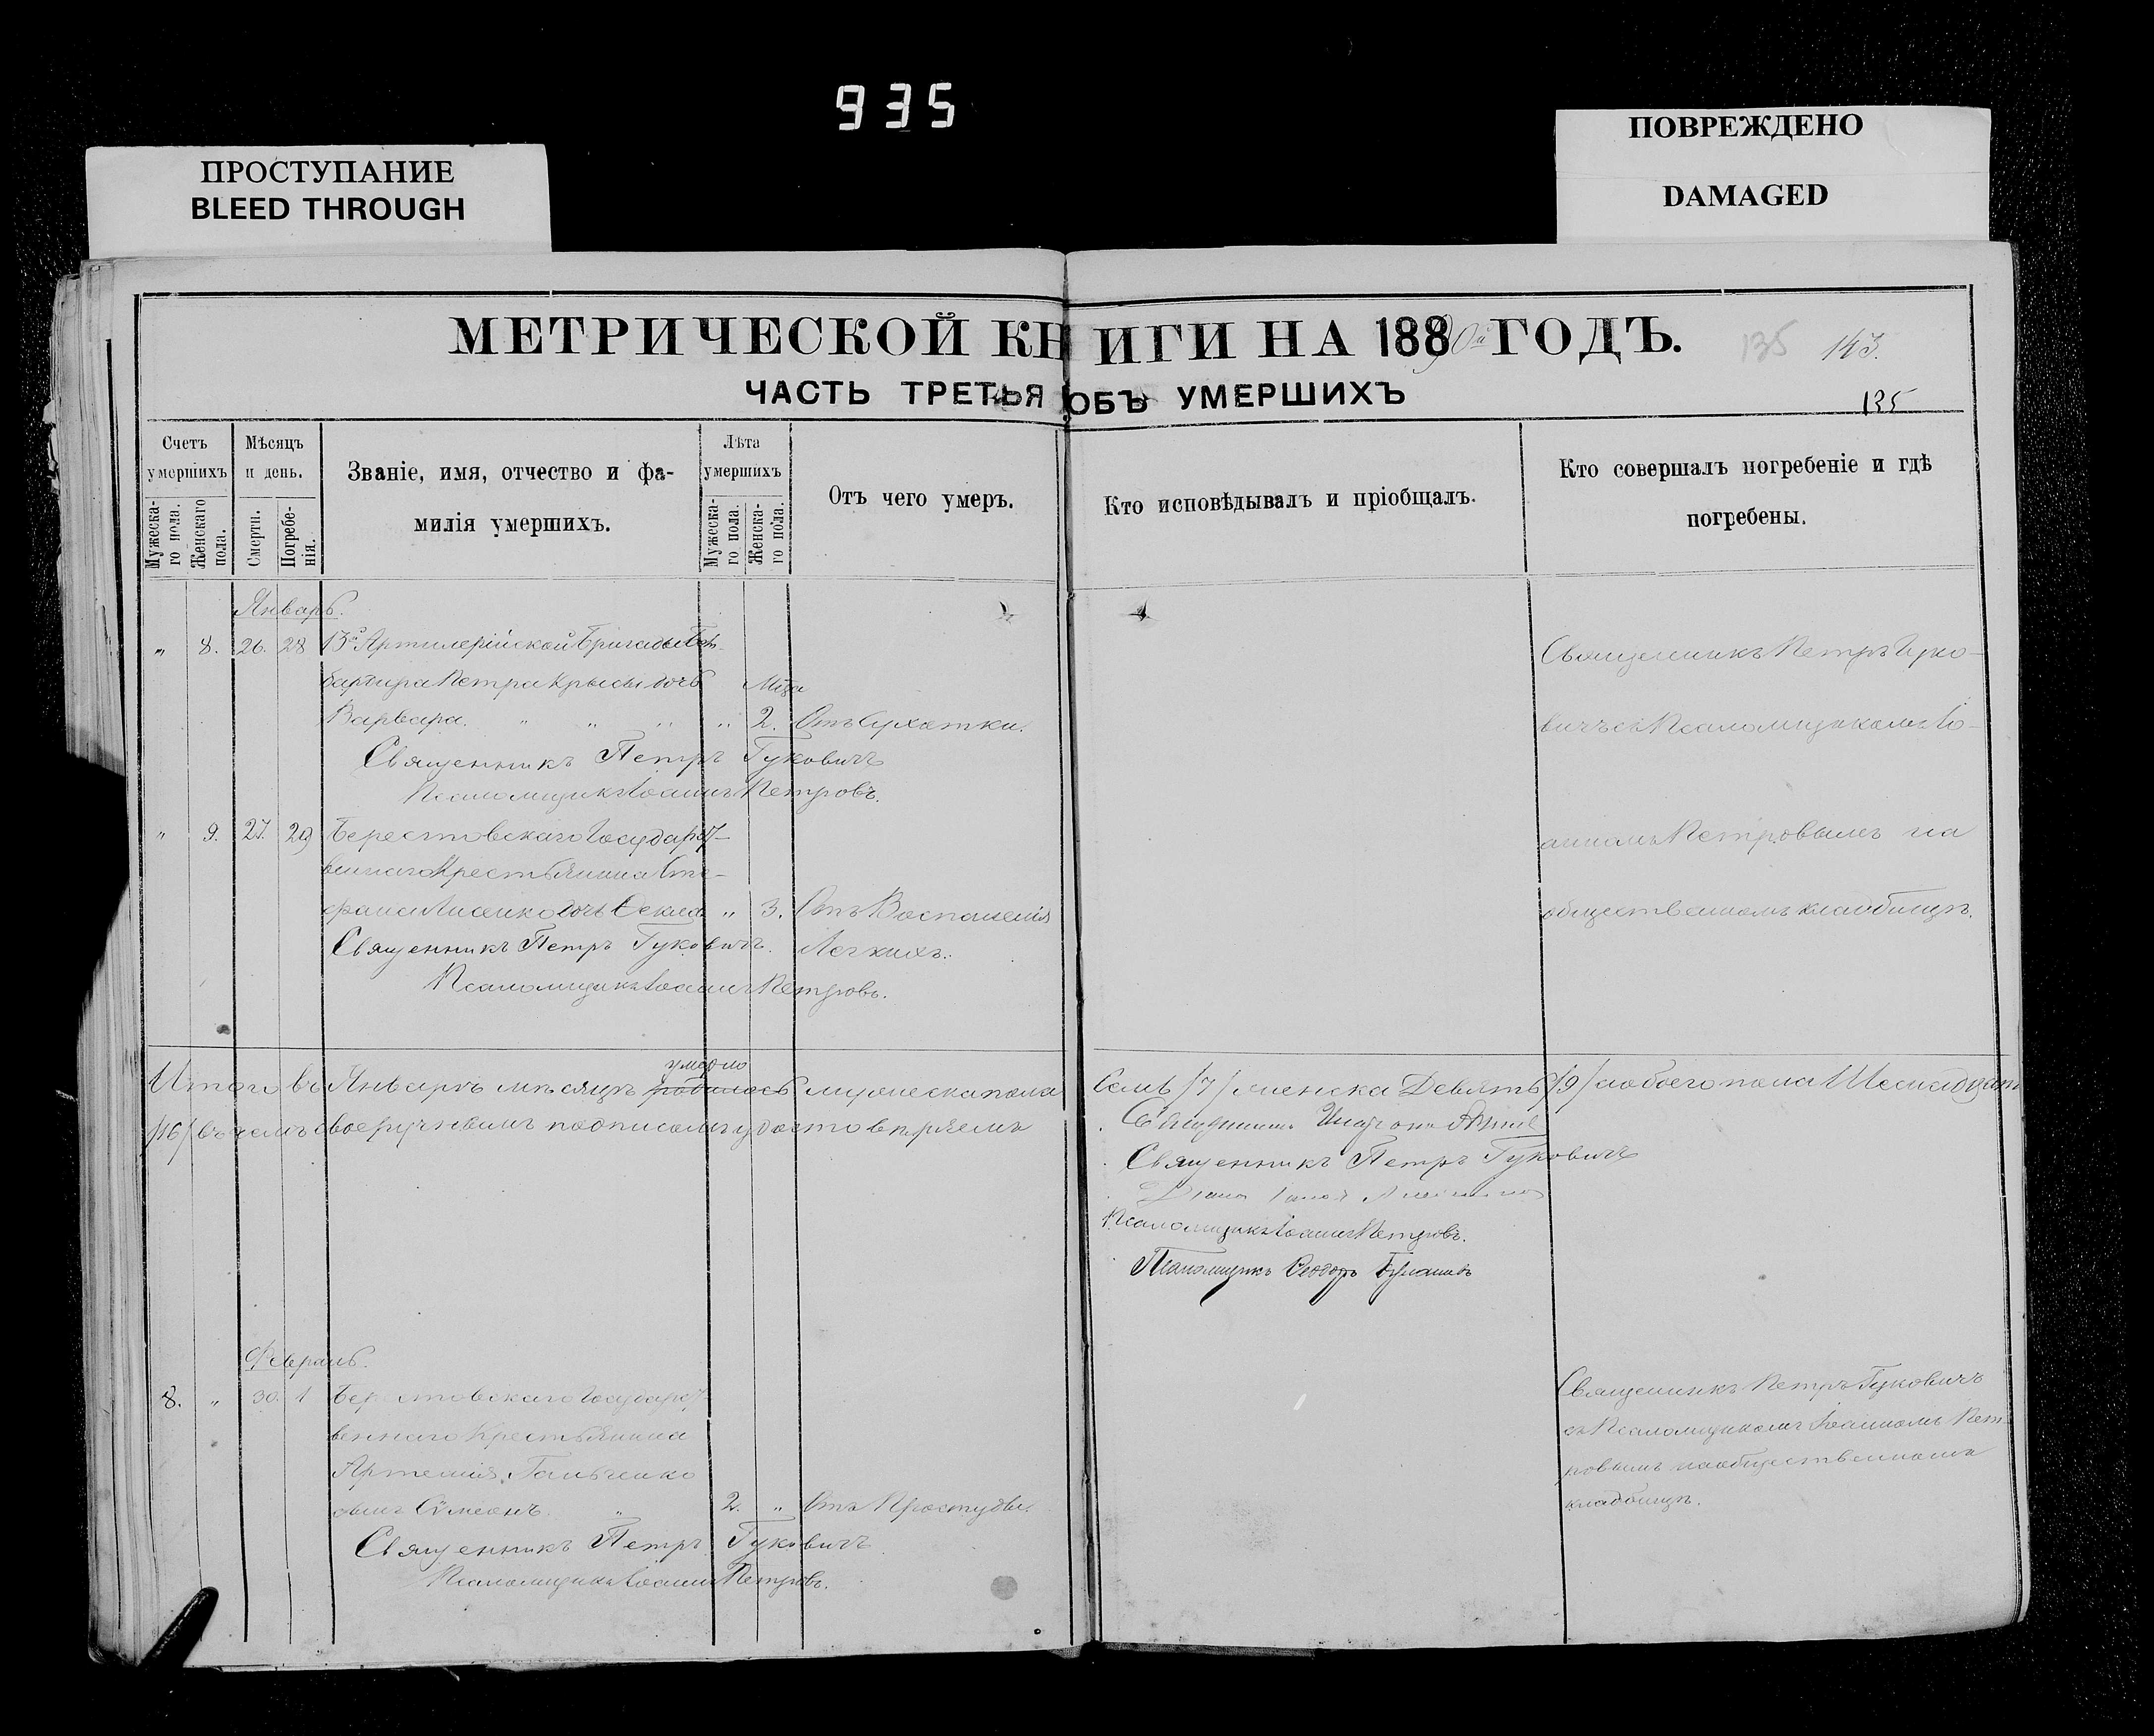 935
ПРОСТУПАНИЕ
BLEED THROUGH
ПОВРЕЖДЕНО
DAMAGED
МЕТРИЧЕСКОЙ КНИГИ НА 1890й ГОДЪ.
135 143.
ЧАСТЬ ТРЕТЬЯ ОБЪ УМЕРШИХЪ
135
Счетъ умершихъ
Мужеска-го пола.
Женскаго пола.
Мѣсяцъ и день.
Смерти.
Погребе-нія.
Званіе, имя, отчество и фа-
милія умершихъ.
Лѣта умершихъ
Мужеска-го пола.
Женска-го пола.
Отъ чего умеръ.
Кто исповѣдывалъ и пріобщалъ.
Кто совершалъ погребеніе и гдѣ
погребены.
Январь.
„ 8. 26. 28 13й Артилерійской Бригады Бом-
бардира Петра Крысы дочь Мѣся
Варвара. „ „ „ „ 2. Отъ Сухотки.
Священникъ Петръ Гуковичъ
Псаломщикъ Іоаннъ Петровъ.
Священникъ Петръ Гуко-
вичъ съ Псаломщикомъ Іо-
анномъ Петровымъ на
общественномъ кладбищѣ.
„ 9. 27. 29 Берестовскаго Государст-
веннаго Крестьянина Сте-
фана Лисенко дочь Ѳекла „ 3. Отъ Воспаленія
Священникъ Петръ Гуковичъ. Легкихъ.
Псаломщикъ Іоаннъ Петровъ.
Итого въ Январѣ мѣсяцѣ родилось умерло мужеска пола Семь /7/ женска Девять /9/ а обоего пола Шеснадцат
/16/ въ чемъ своеручнымъ подписомъ удостовѣряемъ
Священникъ
Священникъ Петръ Гуковичъ
Псаломщикъ Іоаннъ Петровъ.
Псаломщикъ Ѳеодоръ
Февраль.
8. „ 30. 1 Берестовскаго Государст-
веннаго Крестьянина
Артемія Гальченко
сынъ Сѵмеонъ. „ 2. „ Отъ Простуды.
Священникъ Петръ Гуковичъ
Псаломщикъ Іоаннъ Петровъ.
Священникъ Петръ Гуковичъ
съ Псаломщикомъ Іоанномъ Пет-
ровымъ на общественномъ
кладбищѣ.